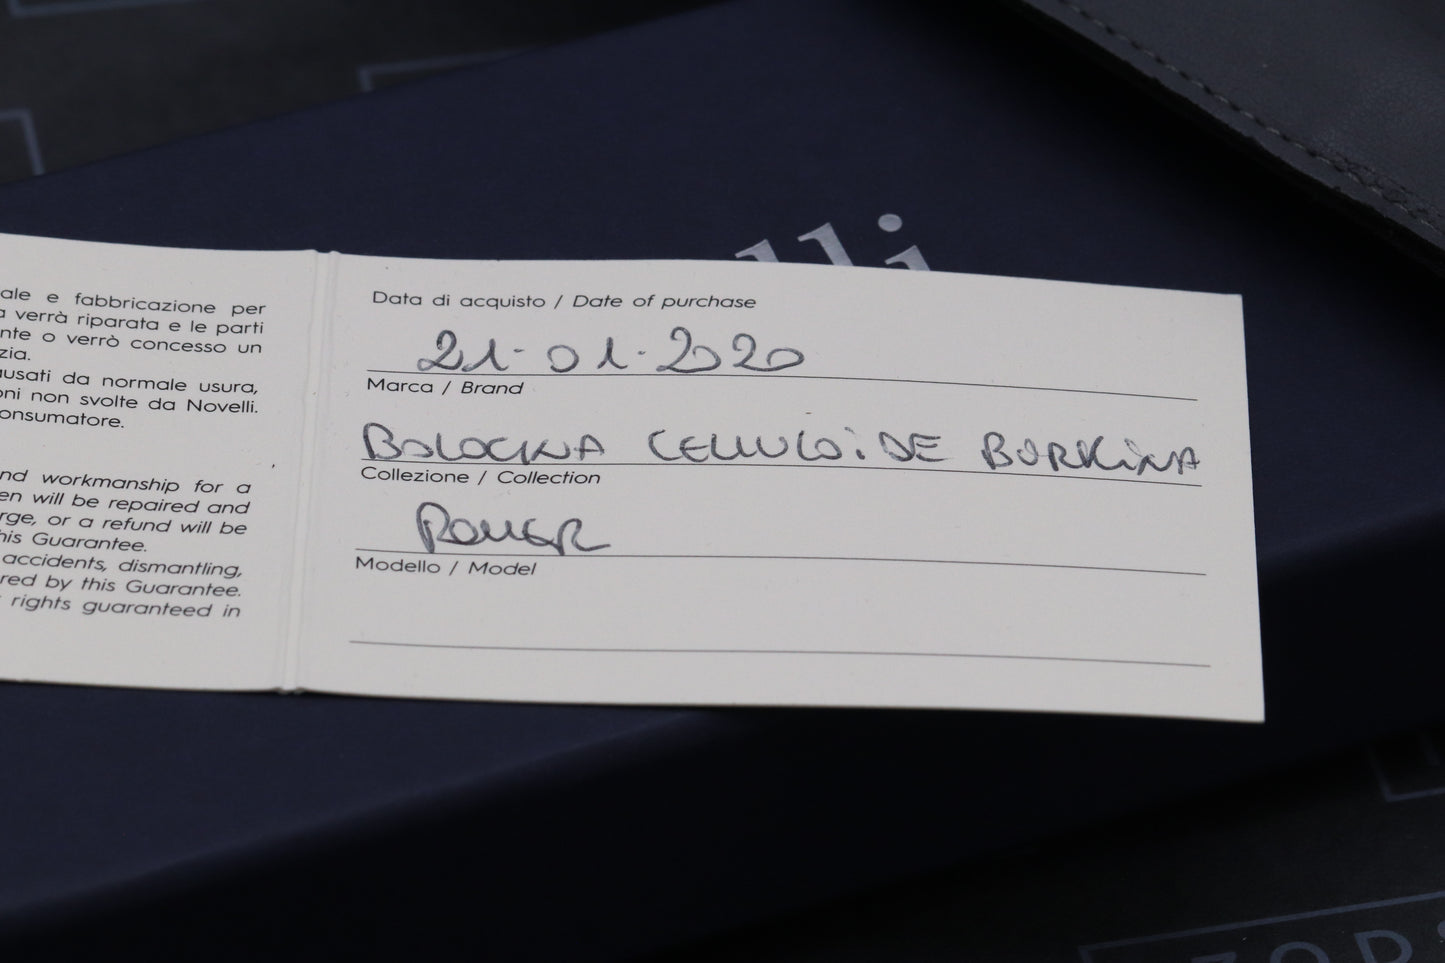 lli
ale e fabbricazione per
a verrà riparata e le parti
nte o verrò concesso un
zia.
ausati da normale usura,
oni non svolte da Novelli.
onsumatore.
nd workmanship for a
en will be repaired and
rge, or a refund will be
his Guarantee.
accidents, dismantling,
red by this Guarantee.
rights guaranteed in
Data di acquisto / Date of purchase
21-01-2020
Marca / Brand
BOLOGNA CELLULOiDE BURKiNA
Collezione / Collection
Modello / Model